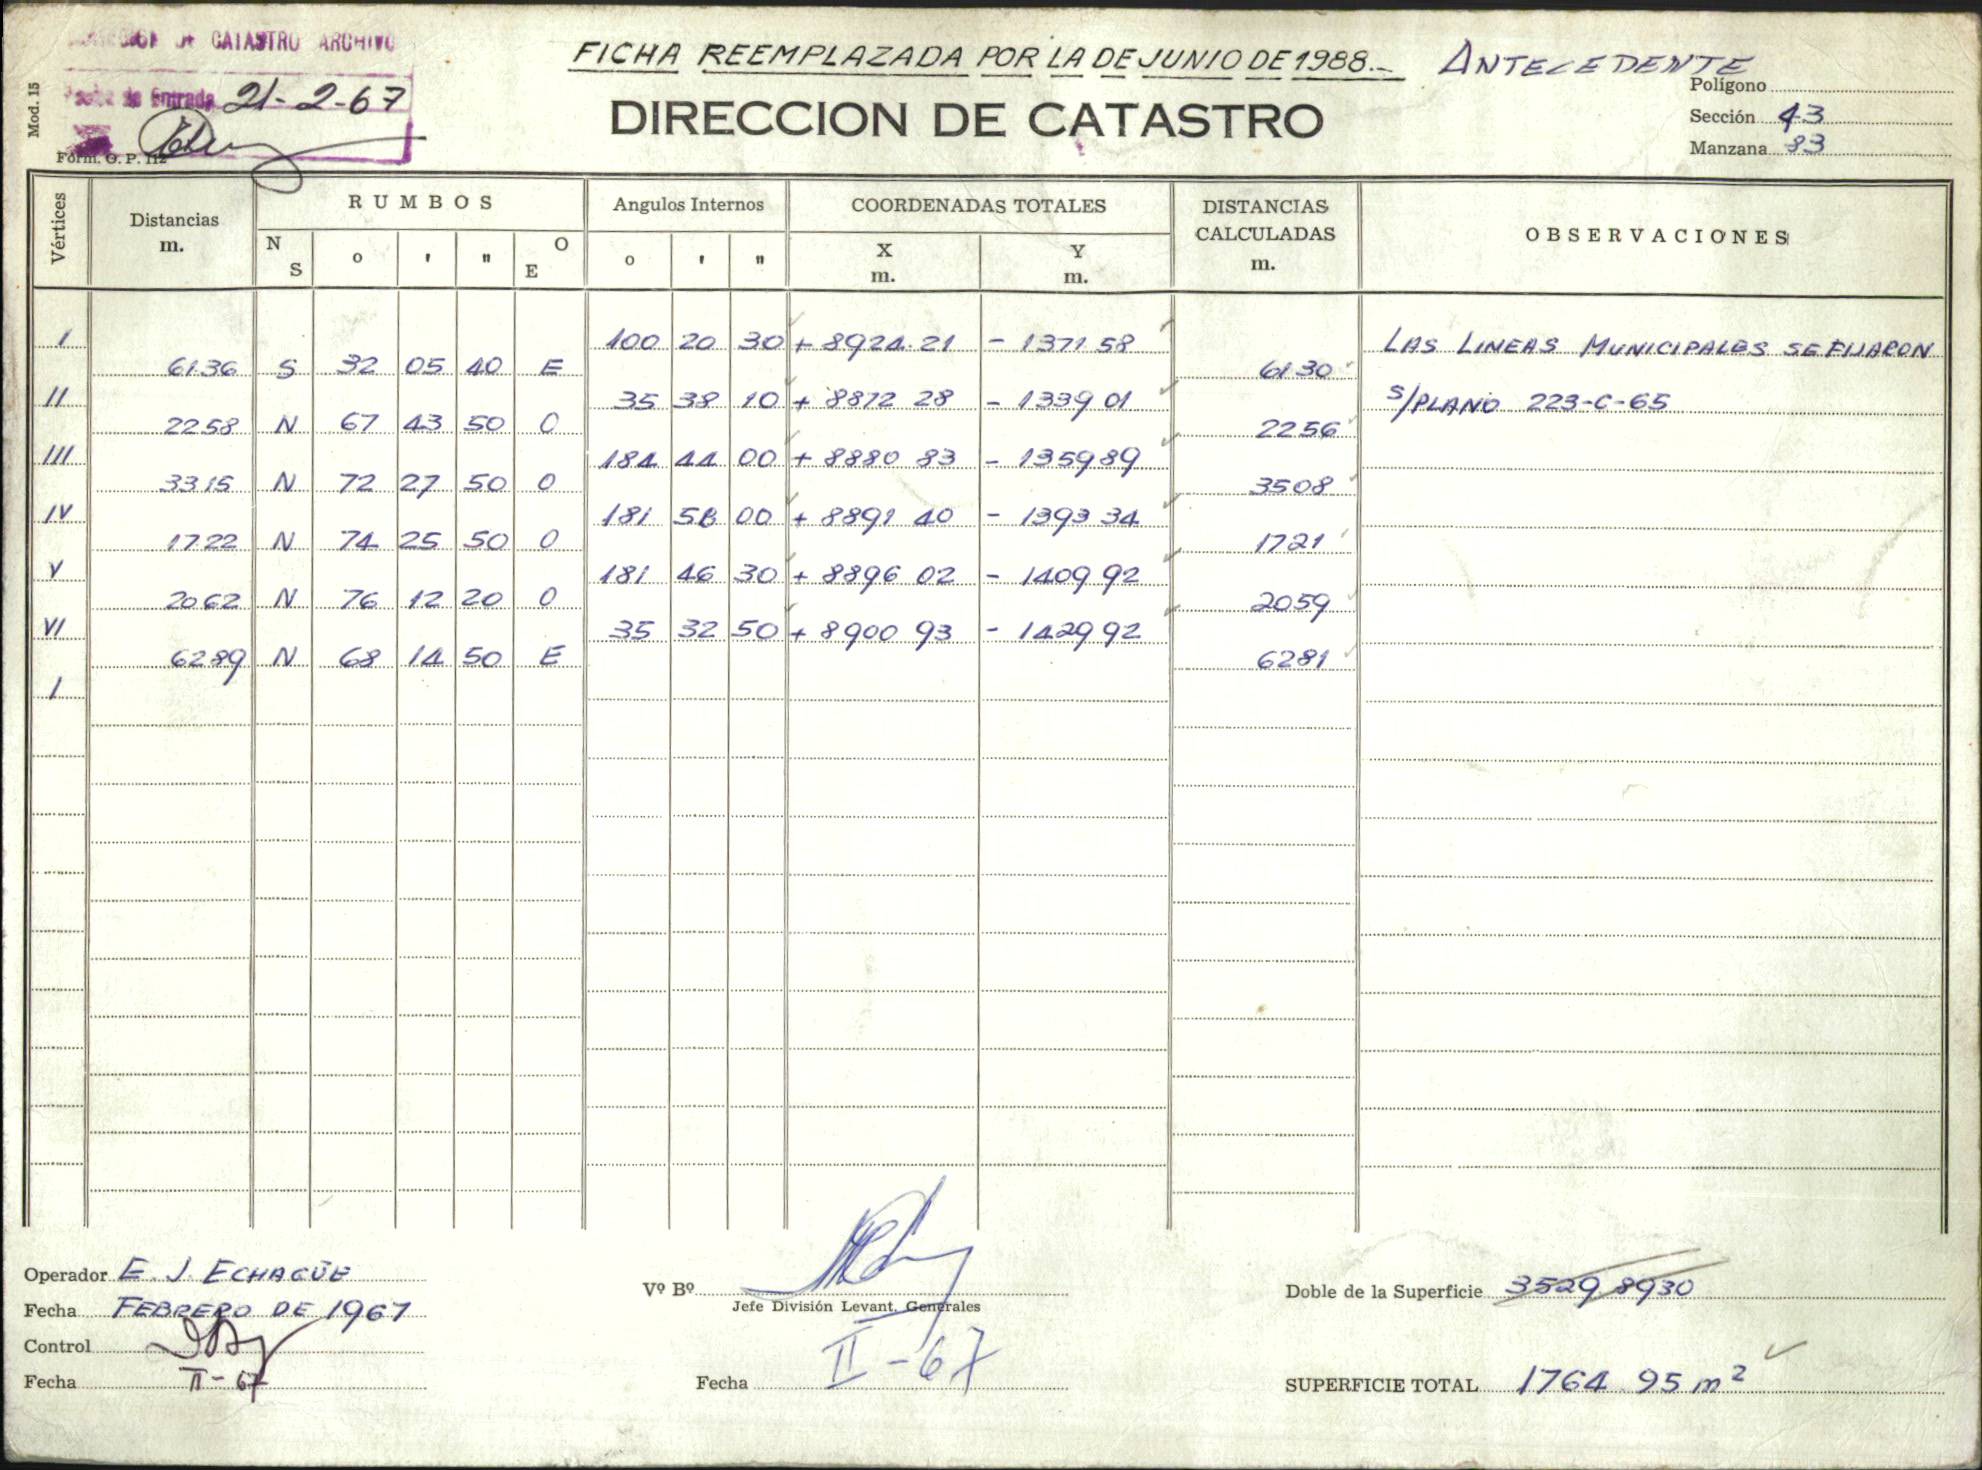 DIRECCION DE CATASTRO ARCHIVO
FICHA REEMPLAZADA POR LA DE JUNIO DE 1988.-
ANTECEDENTE
Mod. 15
Fecha de Entrada 21-2-67
Form. O. P. 112
DIRECCION DE CATASTRO
Polígono
Sección 43
Manzana 83
Vértices
Distancias
m.
RUMBOS
N
S
o ' "
O
E
Angulos Internos
o ' "
COORDENADAS TOTALES
X
m.
Y
m.
DISTANCIAS
CALCULADAS
m.
OBSERVACIONES
I 100 20 30 + 8924.21 - 1371 58 LAS LINEAS MUNICIPALES SE FIJARON
6136 S 32 05 40 E 6130
II 35 38 10 + 8872 28 - 1339 01 S/PLANO 223-C-65
2258 N 67 43 50 O 2256
III 184 44 00 + 8880 83 - 1359 89
3315 N 72 27 50 O 3508
IV 181 58 00 + 8891 40 - 1393 34
1722 N 74 25 50 O 1721
V 181 46 30 + 8896 02 - 1409 92
2062 N 76 12 20 O 2059
VI 35 32 50 + 8900 93 - 1429 92
6289 N 68 14 50 E 6281
I
Operador E. J. ECHAGÜE
Fecha FEBRERO DE 1967
Control
Fecha II-67
Vº Bº
Jefe División Levant. Generales
Fecha II-67
Doble de la Superficie 3529 8930
SUPERFICIE TOTAL 1764.95 m2